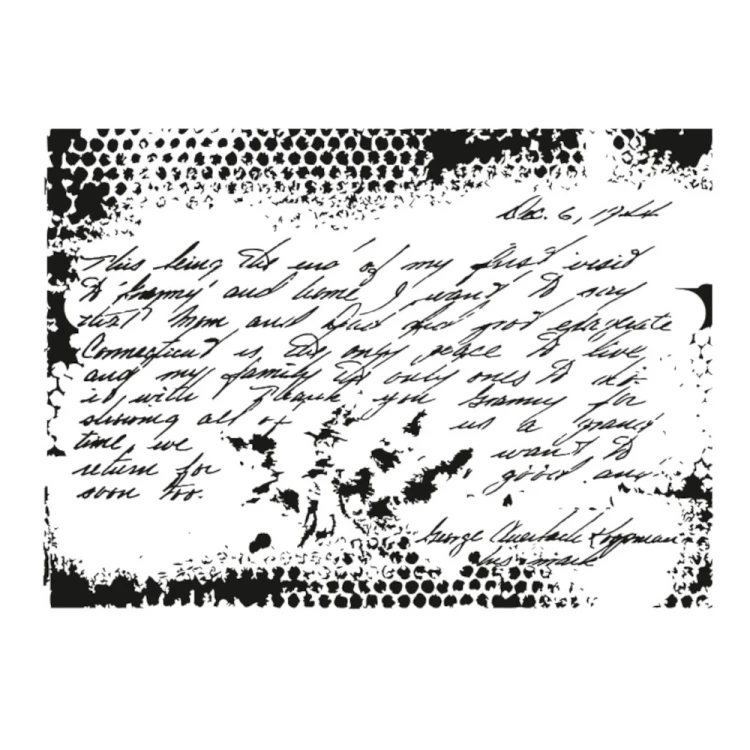 Dec. 6, 1944
This being the end of my first visit
to 'Grammy' and home, I want to say
that Mom and Dad did not exagerate
Connecticut is the only place to live,
and my family the only ones to do
it with. Thank you Grammy for
showing all of us a grand
time, we want to
return for good and
soon too.
George Auerbach Hoffman
his mark